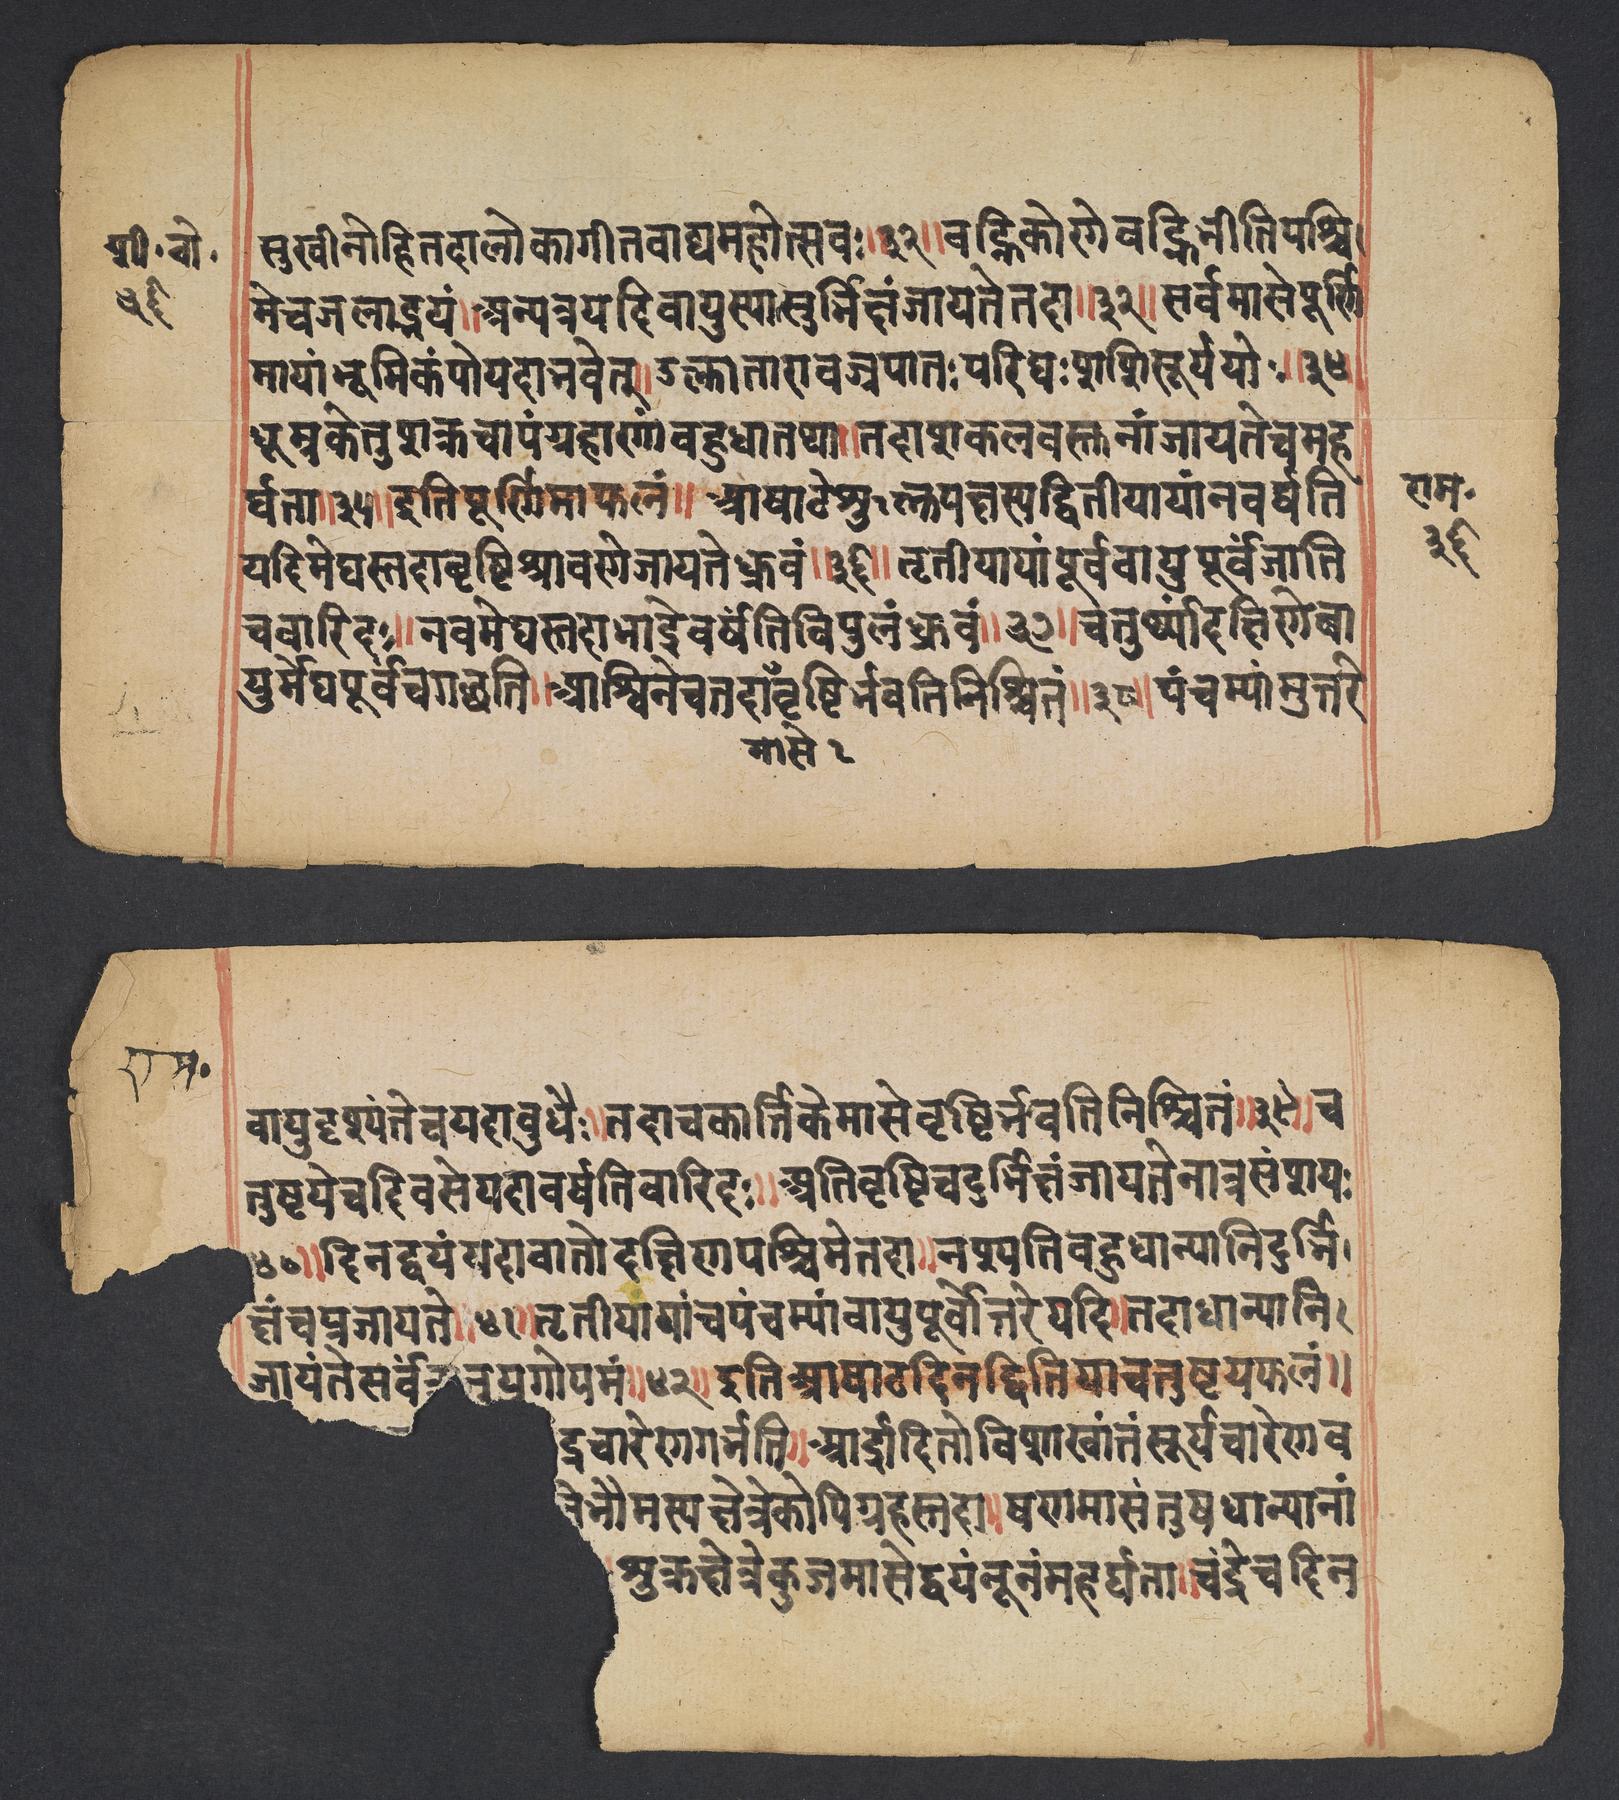 शी॰ बो॰
३६
सुखीनोहितदालोकागीतवाद्यमहोत्सवः॥३२॥वह्निकोणेवह्निनीतिपश्चि
मेचजलाद्भयं॥अन्यत्रयदिवायुस्यात्सुर्भिक्षंजायतेतदा॥३३॥सर्वमासेपूर्णि
मायांभूमिकंपोयदाभवेत्॥उल्कातारावज्रपातःपरिघःशशिसूर्ययोः॥३४
धूम्रकेतुशक्रचापंग्रहाणांवहुधातथा॥तदाशकलवस्तनांजायतेचमह
र्घता॥३५॥इतिपूर्णिमाफलं॥आषाढेशुक्लपक्षस्यद्वितीयायांनवर्षति
यदिमेघस्तदावृष्टिश्रावणेजायतेध्रुवं॥३६॥तृतीयायांपूर्ववायुपूर्वंजाति
चवारिदः॥नवमेघस्तदाभाद्रेवर्षंतिविपुलंध्रुवं॥३७॥चतुर्थ्यांदक्षिणेवा
युर्मेघपूर्वंचगछति॥आश्विनेचतदावृष्टिर्भवतिनिश्चितं॥३८॥पंचम्यांमुत्तरे
मासे १
राम॰
३६
राम॰
वायुदृश्यंतेचयदावुधैः॥तदाचकार्त्तिकेमासेवृष्टिर्भवतिनिश्चितं॥३९॥च
तुष्टयेचदिवसेयदावर्षतिवारिदः॥अतिवृष्टिचदुर्भिक्षंजायतेनात्रसंशयः
४०॥दिनद्वयंयदावातोदक्षिणपश्चिमेतदा॥नपश्यतिवहुधान्यानिदुर्भि
क्षंचप्रजायते॥४१॥तृतीयायांचपंचम्यांवायुपूर्वोत्तरेयदि॥तदाधान्यानि
जायंतेसर्वं युगोपमं॥४२॥इतिआषाढदिनद्वितियाचतुष्टयफलं॥
द्रचारेणगर्भति॥आर्द्रादितोविशाखांतंसूर्यचारेणव
भौमस्यक्षेत्रेकोपिग्रहस्तदा॥षणमासंतुषधान्यानां
शुक्रक्षेत्रेकुजमासेद्वयंनूनंमहर्घता॥चंद्रेचदिन